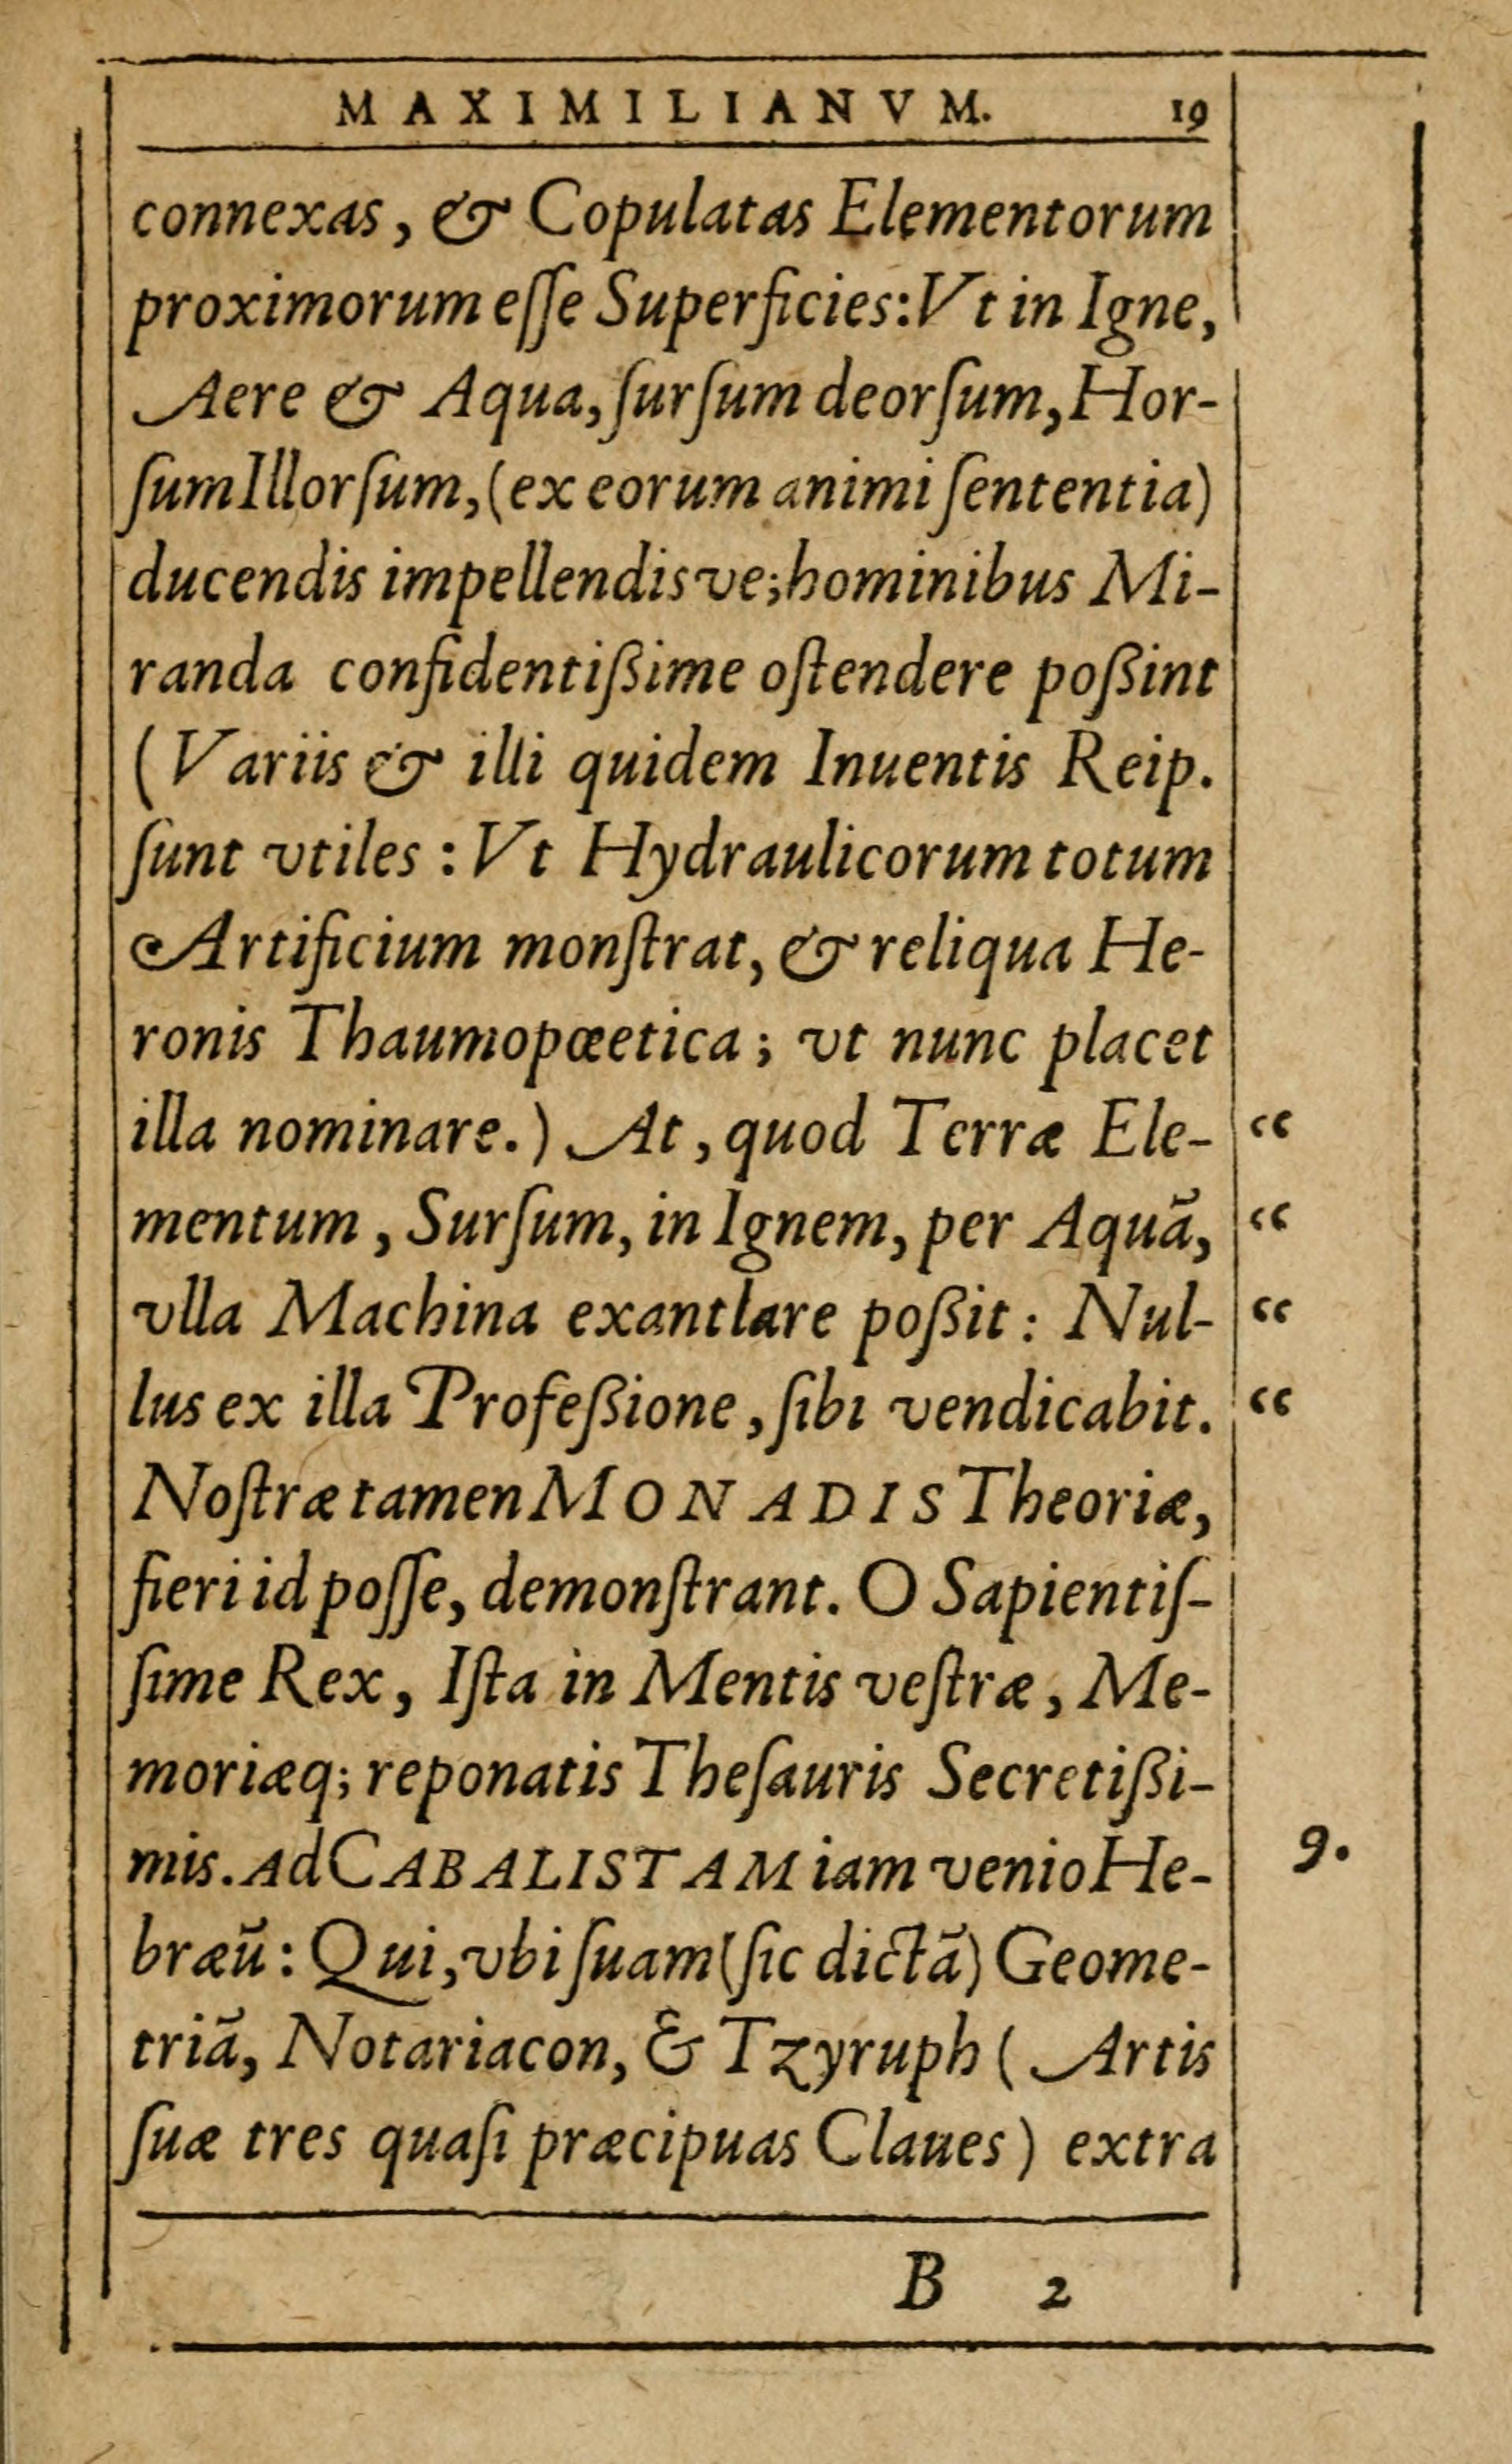 MAXIMILIANVM. 19
connexas, & Copulatas Elementorum
proximorum eſſe Superficies: Vt in Igne,
Aere & Aqua, ſurſum deorſum, Hor-
ſum Illorſum, (ex eorum animi ſententia)
ducendis impellendisve; hominibus Mi-
randa confidentiſsime oſtendere poſsint
(Variis & illi quidem Inuentis Reip.
ſunt vtiles: Vt Hydraulicorum totum
Artificium monſtrat, & reliqua He-
ronis Thaumopœetica; vt nunc placet
illa nominare.) At, quod Terræ Ele- “
mentum, Surſum, in Ignem, per Aquã, “
vlla Machina exantlare poſsit: Nul- “
lus ex illa Profeſsione, ſibi vendicabit. “
Noſtræ tamen MONADIS Theoriæ,
fieri id poſſe, demonſtrant. O Sapientiſ-
ſime Rex, Iſta in Mentis veſtræ, Me-
moriæq; reponatis Theſauris Secretiſsi-
mis. Ad CABALISTAM iam venio He- 9.
bræũ: Qui, vbi ſuam (ſic dictã) Geome-
triã, Notariacon, & Tzyruph (Artis
ſuæ tres quaſi præcipuas Claues) extra
B 2